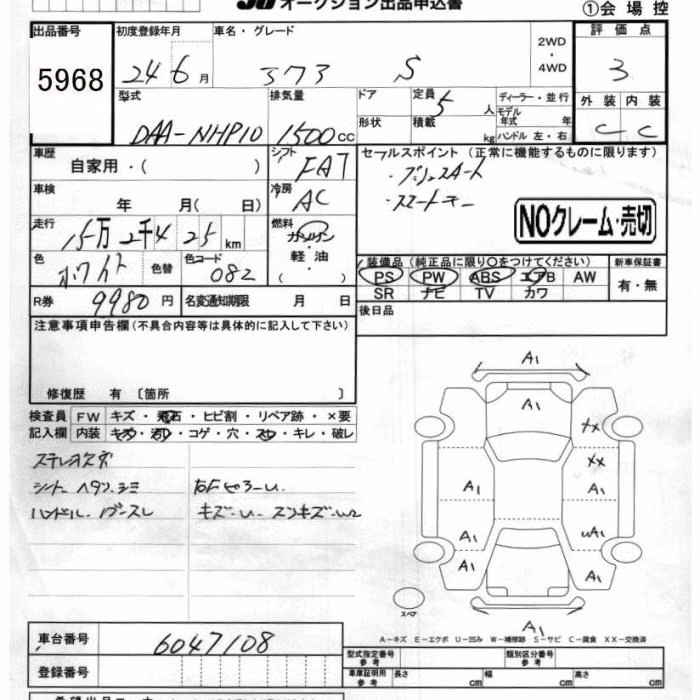 オークション出品申込書
①会場控
出品番号
5968
初度登録年月
24 6月
車名・グレード
S
2WD
・
4WD
評価点
3
外装 内装
C C
型式
DAA-NHP10
排気量
1500 cc
ドア
形状
定員 5 人
積載 kg
ディーラー・並行
モデル年式 年
ハンドル 左・右
車歴
自家用・( )
シフト
FAT
セールスポイント(正常に機能するものに限ります)
・プッシュスタート
・スマートキー
NOクレーム・売切
車検
年 月( 日)
冷房
AC
走行
15万2千425 km
燃料
ガソリン
・
軽・油
色
ホワイト
色替
色コード
082
装備品(純正品に限り○をつけてください)
PS PW ABS エアB AW
SR ナビ TV カワ
新車保証書
有・無
R券 9980円
名変通知期限 月 日
後日品
注意事項申告欄(不具合内容等は具体的に記入して下さい)
修復歴 有〔箇所 〕
検査員記入欄
FW キズ・飛石・ヒビ割・リペア跡・×要
内装 キズ・汚れ・コゲ・穴・スレ・キレ・破レ
シート ヘタリ.シミ
A1
A1
XX
A1
A1
A1
UA1
A1
A1
A1
スペア
A-キズ E-エクボ U-凹み W-補修跡 S-サビ C-腐食 XX-交換済
車台番号
6047108
登録番号
型式指定番号
参考
類別区分番号
参考
車庫証明用
参考
長さ cm
幅 cm
高さ cm